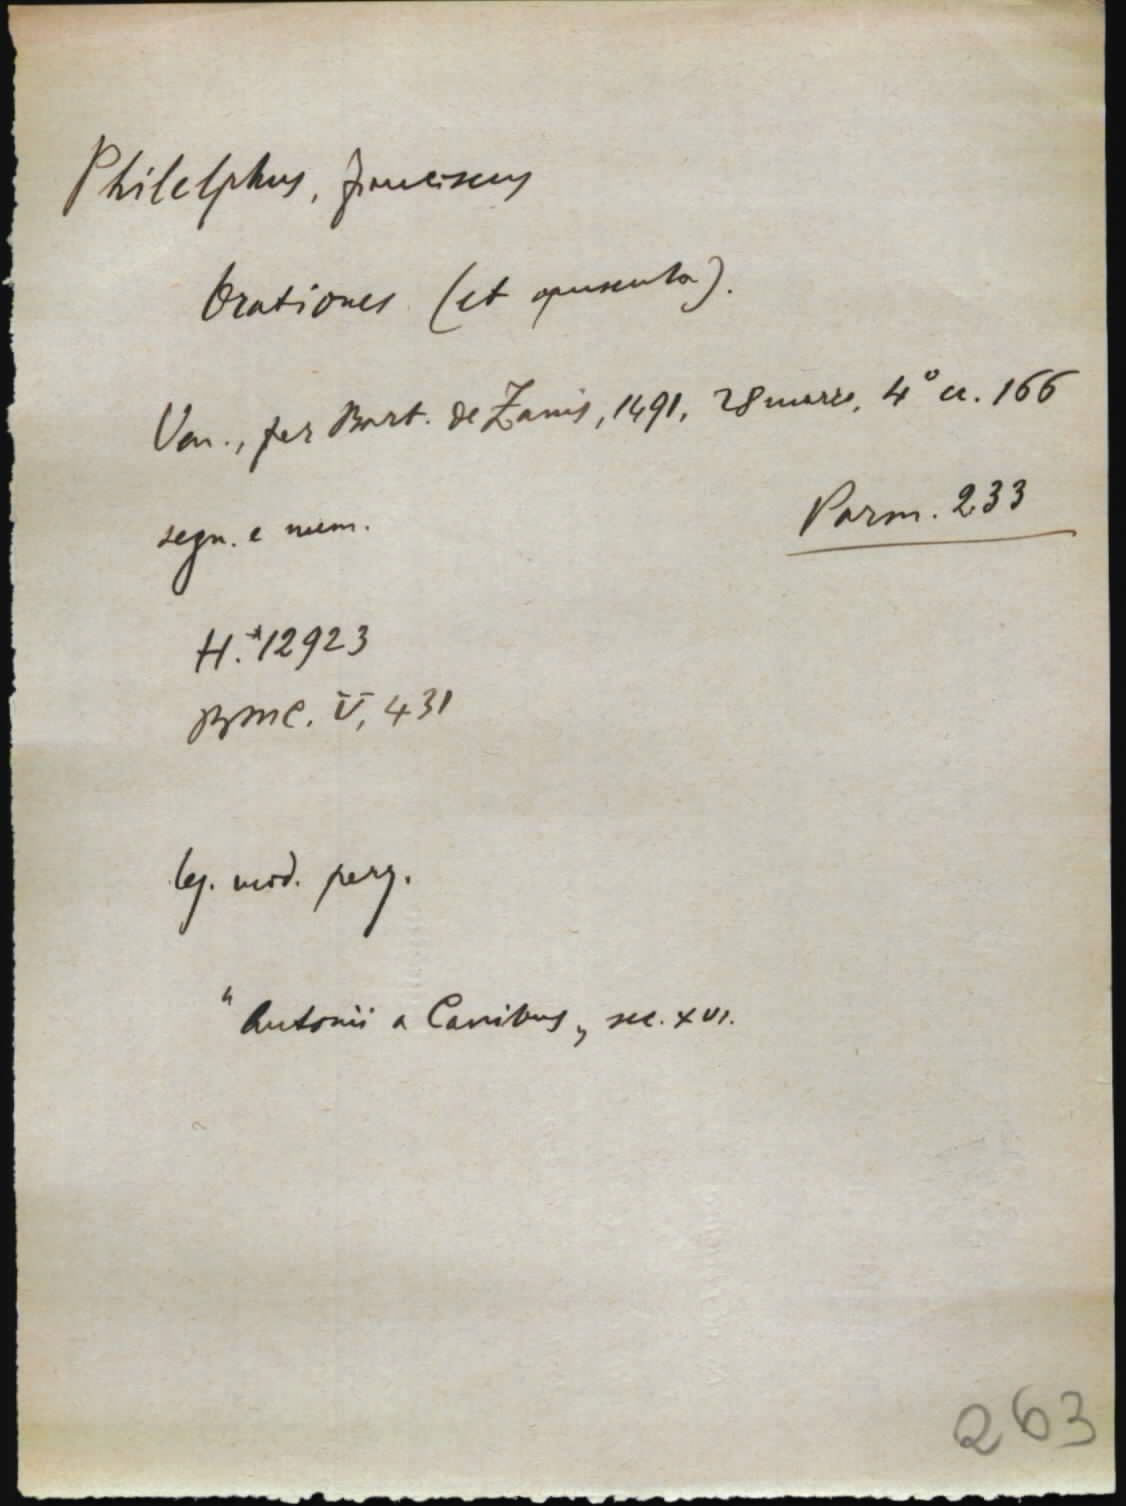 Philelphus, Franciscus
Orationes (et opuscula).
Ven., per Bart. de Zanis, 1491, 28 marzo, 4° cc. 166
Parm. 233
segn. e num.
H.*12923
BMC. V, 431
leg. mod. perg.
"Antonii a Canibus„ sec. XVI.
263